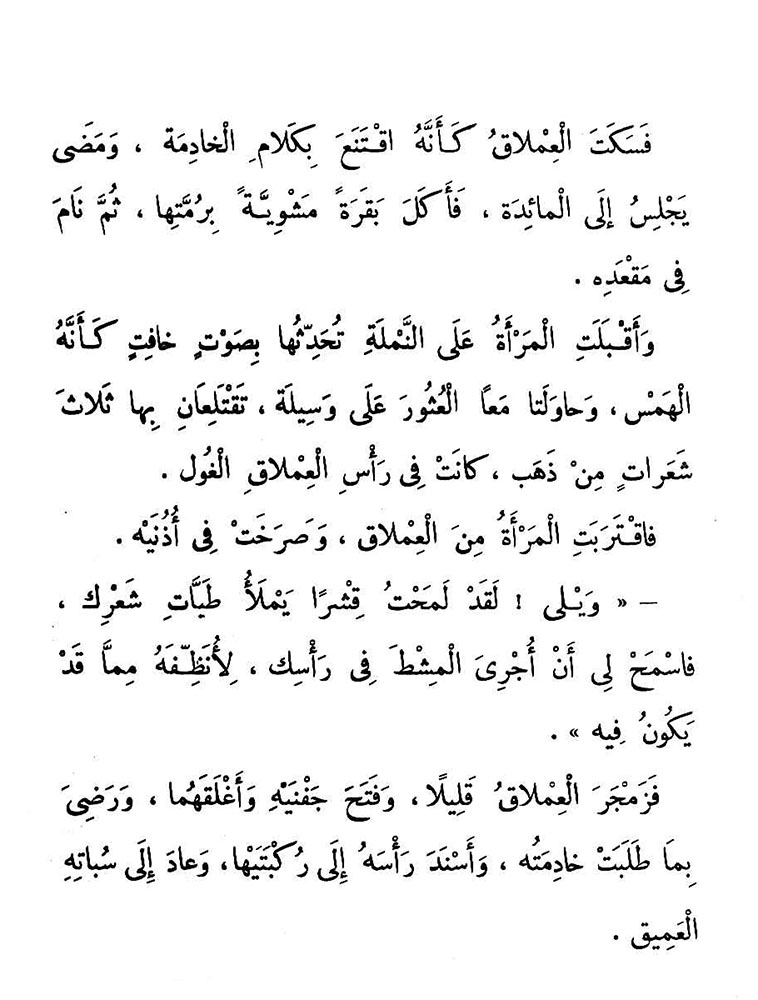 فَسَكَتَ الْعِمْلاقُ كَأَنَّهُ اقْتَنَعَ بِكَلامِ الْخادِمَة ، وَمَضَى
يَجْلِسُ إلَى الْمائِدَة ، فَأَكَلَ بَقَرَةً مَشْوِيَّةً بِرُمَّتِها ، ثُمَّ نَامَ
فِى مَقْعَدِه .
وَأَقْبَلَتِ الْمَرْأَةُ عَلَى النَّمْلَةِ تُحَدِّثُها بِصَوْتٍ خافِتٍ كَأَنَّهُ
الْهَمْس ، وَحاوَلَتا مَعاً الْعُثُورَ عَلَى وَسِيلَة ، تَقْتَلِعَانِ بِها ثَلاثَ
شَعَراتٍ مِنْ ذَهَب ، كانَتْ فِى رَأْسِ الْعِمْلاقِ الْغُول .
فاقْتَرَبَتِ الْمَرْأَةُ مِنَ الْعِمْلاق ، وَصَرَخَتْ فِى أُذُنَيْه .
– « وَيْلى ! لَقَدْ لَمَحْتُ قِشْرًا يَمْلَأُ طَبَّاتِ شَعْرِك ،
فاسْمَحْ لِى أَنْ أُجْرِىَ الْمِشْطَ فِى رَأْسِك ، لِأُنَظِّفَهُ مِمَّا قَدْ
يَكُونُ فِيه » .
فَزَمْجَرَ الْعِمْلاقُ قَلِيلًا ، وَفَتَحَ جَفْنَيْهِ وَأَغْلَقَهُما ، وَرَضِىَ
بِمَا طَلَبَتْ خادِمَتُه ، وَأَسْنَدَ رَأْسَهُ إِلَى رُكْبَتَيْها ، وَعادَ إِلَى سُباتِهِ
الْعَمِيق .